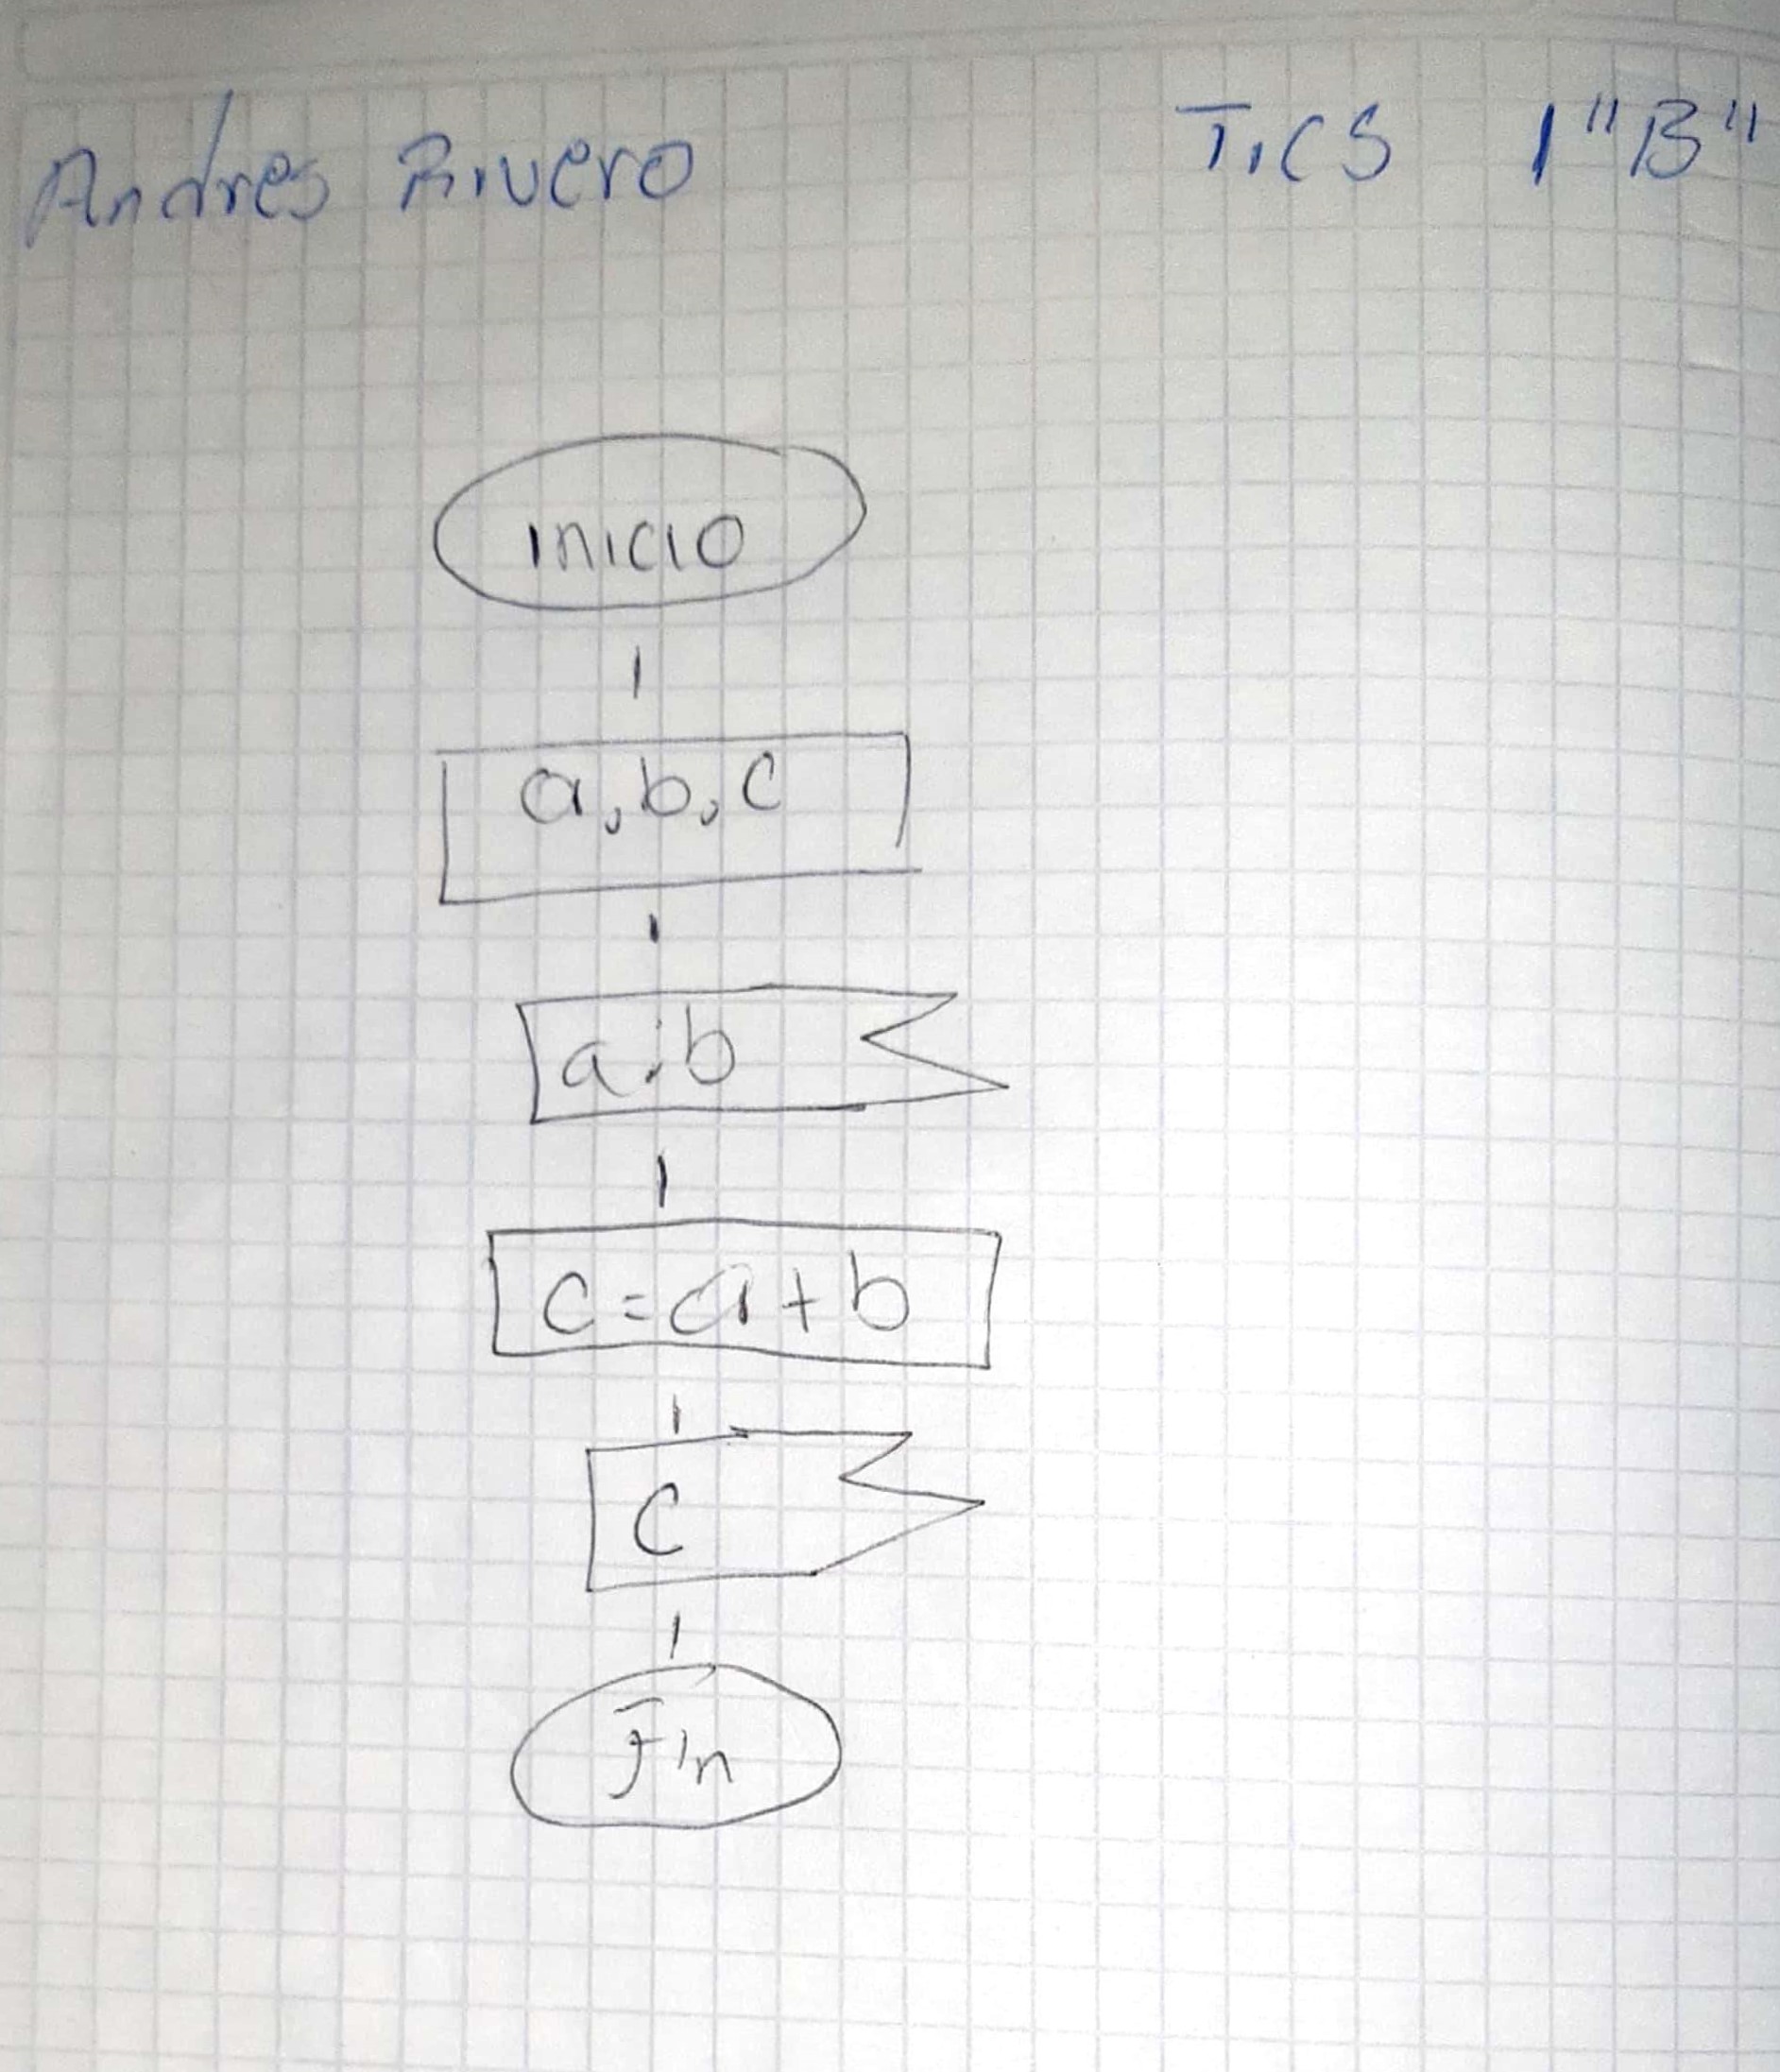 Andres Rivero TICS 1"B"
inicio
a,b,c
a;b
c=a+b
c
Fin